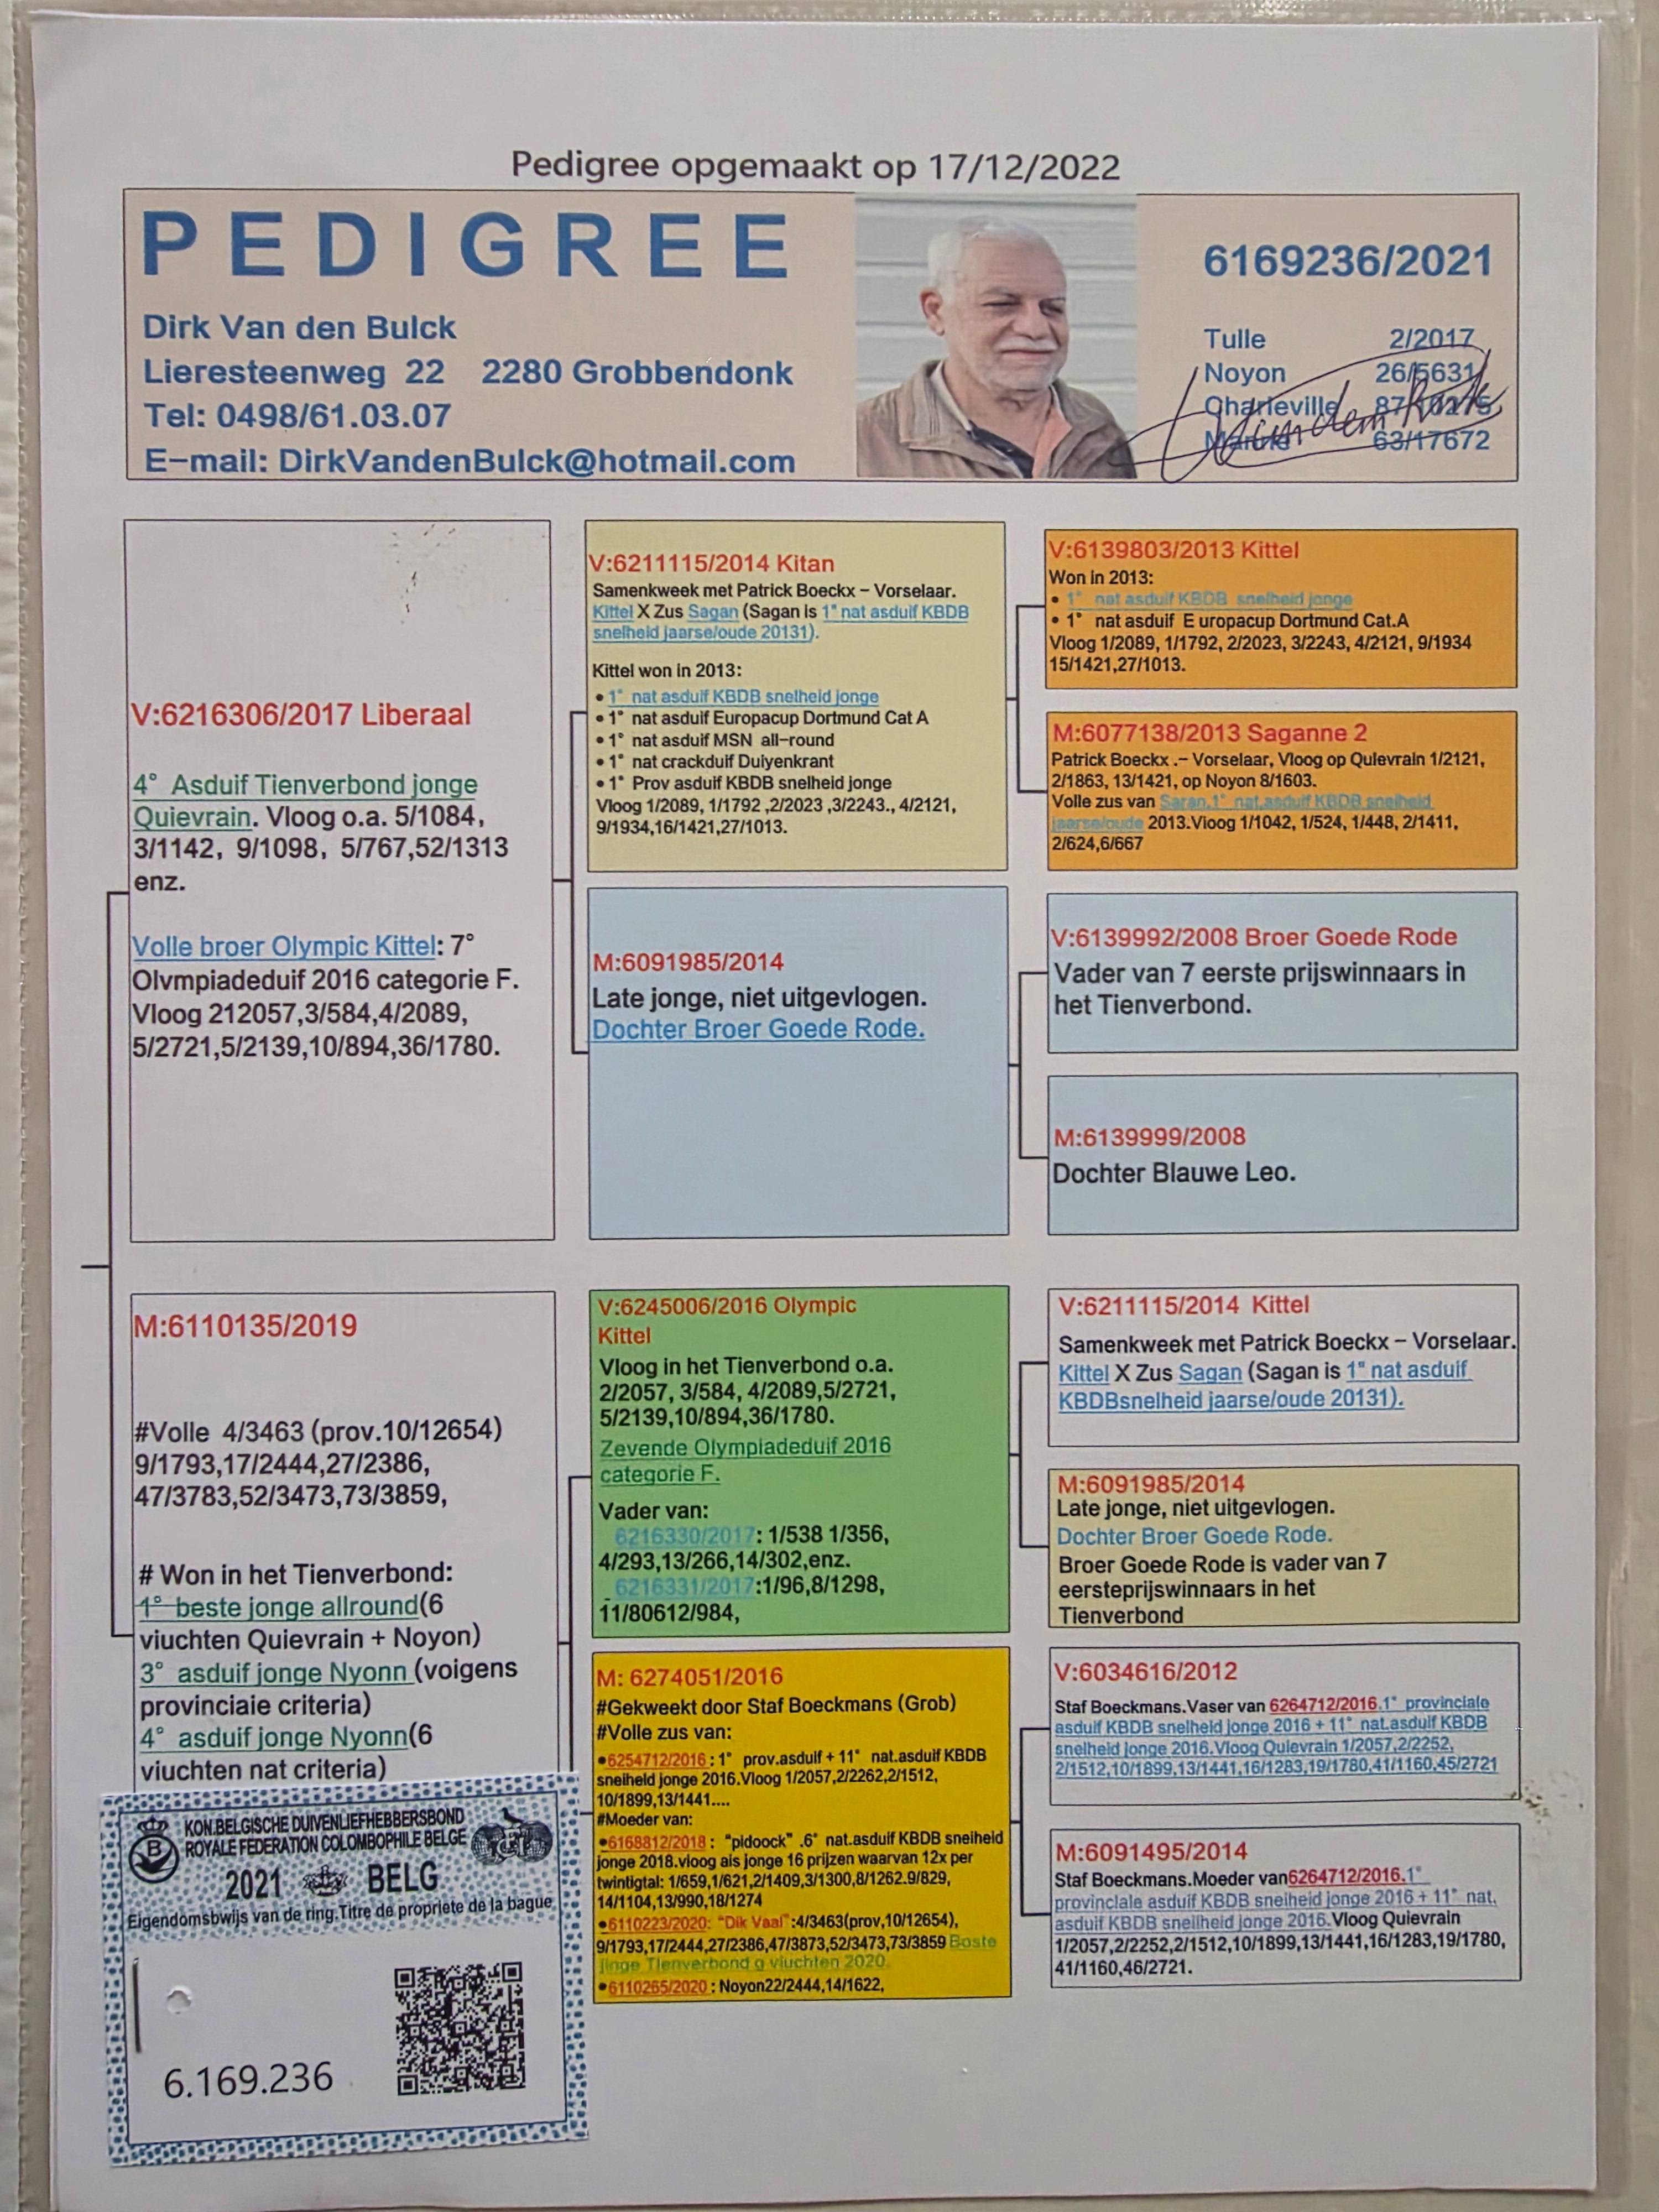 Pedigree opgemaakt op 17/12/2022
PEDIGREE
Dirk Van den Bulck
Lieresteenweg 22 2280 Grobbendonk
Tel: 0498/61.03.07
E-mail: DirkVandenBulck@hotmail.com
6169236/2021
Tulle 2/2017
Noyon 26/5631
Charleville 87/10275
63/17672
V:6216306/2017 Liberaal
4° Asduif Tienverbond jonge
Quievrain. Vloog o.a. 5/1084,
3/1142, 9/1098, 5/767,52/1313
enz.
Volle broer Olympic Kittel: 7°
Olvmpiadeduif 2016 categorie F.
Vloog 212057,3/584,4/2089,
5/2721,5/2139,10/894,36/1780.
V:6211115/2014 Kitan
Samenkweek met Patrick Boeckx – Vorselaar.
Kittel X Zus Sagan (Sagan is 1° nat asduif KBDB
snelheid jaarse/oude 20131).
Kittel won in 2013:
• 1° nat asduif KBDB snelheid jonge
• 1° nat asduif Europacup Dortmund Cat A
• 1° nat asduif MSN all-round
• 1° nat crackduif Duiyenkrant
• 1° Prov asduif KBDB snelheid jonge
Vloog 1/2089, 1/1792 ,2/2023 ,3/2243., 4/2121,
9/1934,16/1421,27/1013.
M:6091985/2014
Late jonge, niet uitgevlogen.
Dochter Broer Goede Rode.
V:6139803/2013 Kittel
Won in 2013:
• 1° nat asduif KBDB snelheid jonge
• 1° nat asduif E uropacup Dortmund Cat.A
Vloog 1/2089, 1/1792, 2/2023, 3/2243, 4/2121, 9/1934
15/1421,27/1013.
M:6077138/2013 Saganne 2
Patrick Boeckx .– Vorselaar, Vloog op Qulevrain 1/2121,
2/1863, 13/1421, op Noyon 8/1603.
Volle zus van Saran,1° nat,asduif KBDB snelheid
jaarse/oude 2013.Vloog 1/1042, 1/524, 1/448, 2/1411,
2/624,6/667
V:6139992/2008 Broer Goede Rode
Vader van 7 eerste prijswinnaars in
het Tienverbond.
M:6139999/2008
Dochter Blauwe Leo.
M:6110135/2019
#Volle 4/3463 (prov.10/12654)
9/1793,17/2444,27/2386,
47/3783,52/3473,73/3859,
# Won in het Tienverbond:
1° beste jonge allround(6
viuchten Quievrain + Noyon)
3° asduif jonge Nyonn (voigens
provinciaie criteria)
4° asduif jonge Nyonn(6
viuchten nat criteria)
V:6245006/2016 Olympic
Kittel
Vloog in het Tienverbond o.a.
2/2057, 3/584, 4/2089,5/2721,
5/2139,10/894,36/1780.
Zevende Olympiadeduif 2016
categorie F.
Vader van:
6216330/2017: 1/538 1/356,
4/293,13/266,14/302,enz.
6216331/2017:1/96,8/1298,
11/80612/984,
M: 6274051/2016
#Gekweekt door Staf Boeckmans (Grob)
#Volle zus van:
•6254712/2016 : 1° prov.asduif + 11° nat.asduif KBDB
snelheid jonge 2016.Vloog 1/2057,2/2262,2/1512,
10/1899,13/1441....
#Moeder van:
•6168812/2018 : "pldoock" .6° nat.asduif KBDB sneiheid
jonge 2018.vloog als jonge 16 prijzen waarvan 12x per
twintigtal: 1/659,1/621,2/1409,3/1300,8/1262.9/829,
14/1104,13/990,18/1274
•6110223/2020: "Dik Vaal" :4/3463(prov,10/12654),
9/1793,17/2444,27/2386,47/3873,52/3473,73/3859 Boste
jinge Tienverbond g viuchten 2020.
•6110265/2020 : Noyon22/2444,14/1622,
V:6211115/2014 Kittel
Samenkweek met Patrick Boeckx – Vorselaar.
Kittel X Zus Sagan (Sagan is 1° nat asduif
KBDBsnelheid jaarse/oude 20131).
M:6091985/2014
Late jonge, niet uitgevlogen.
Dochter Broer Goede Rode.
Broer Goede Rode is vader van 7
eersteprijswinnaars in het
Tienverbond
V:6034616/2012
Staf Boeckmans.Vaser van 6264712/2016.1° provinciale
asduif KBDB snelheid jonge 2016 + 11° nat.asduif KBDB
snelheid jonge 2016.Vloog Qulevrain 1/2057,2/2252,
2/1512,10/1899,13/1441,16/1283,19/1780,41/1160,45/2721
M:6091495/2014
Staf Boeckmans.Moeder van6264712/2016.1°
provinclale asduif KBDB snelheid jonge 2016 + 11° nat,
asduif KBDB sneilheid jonge 2016.Vloog Quievrain
1/2057,2/2252,2/1512,10/1899,13/1441,16/1283,19/1780,
41/1160,46/2721.
KON.BELGISCHE DUIVENLIEFHEBBERSBOND
ROYALE FEDERATION COLOMBOPHILE BELGE
B
2021 BELG
Eigendomsbwijs van de ring.Titre de propriete de la bague
6.169.236